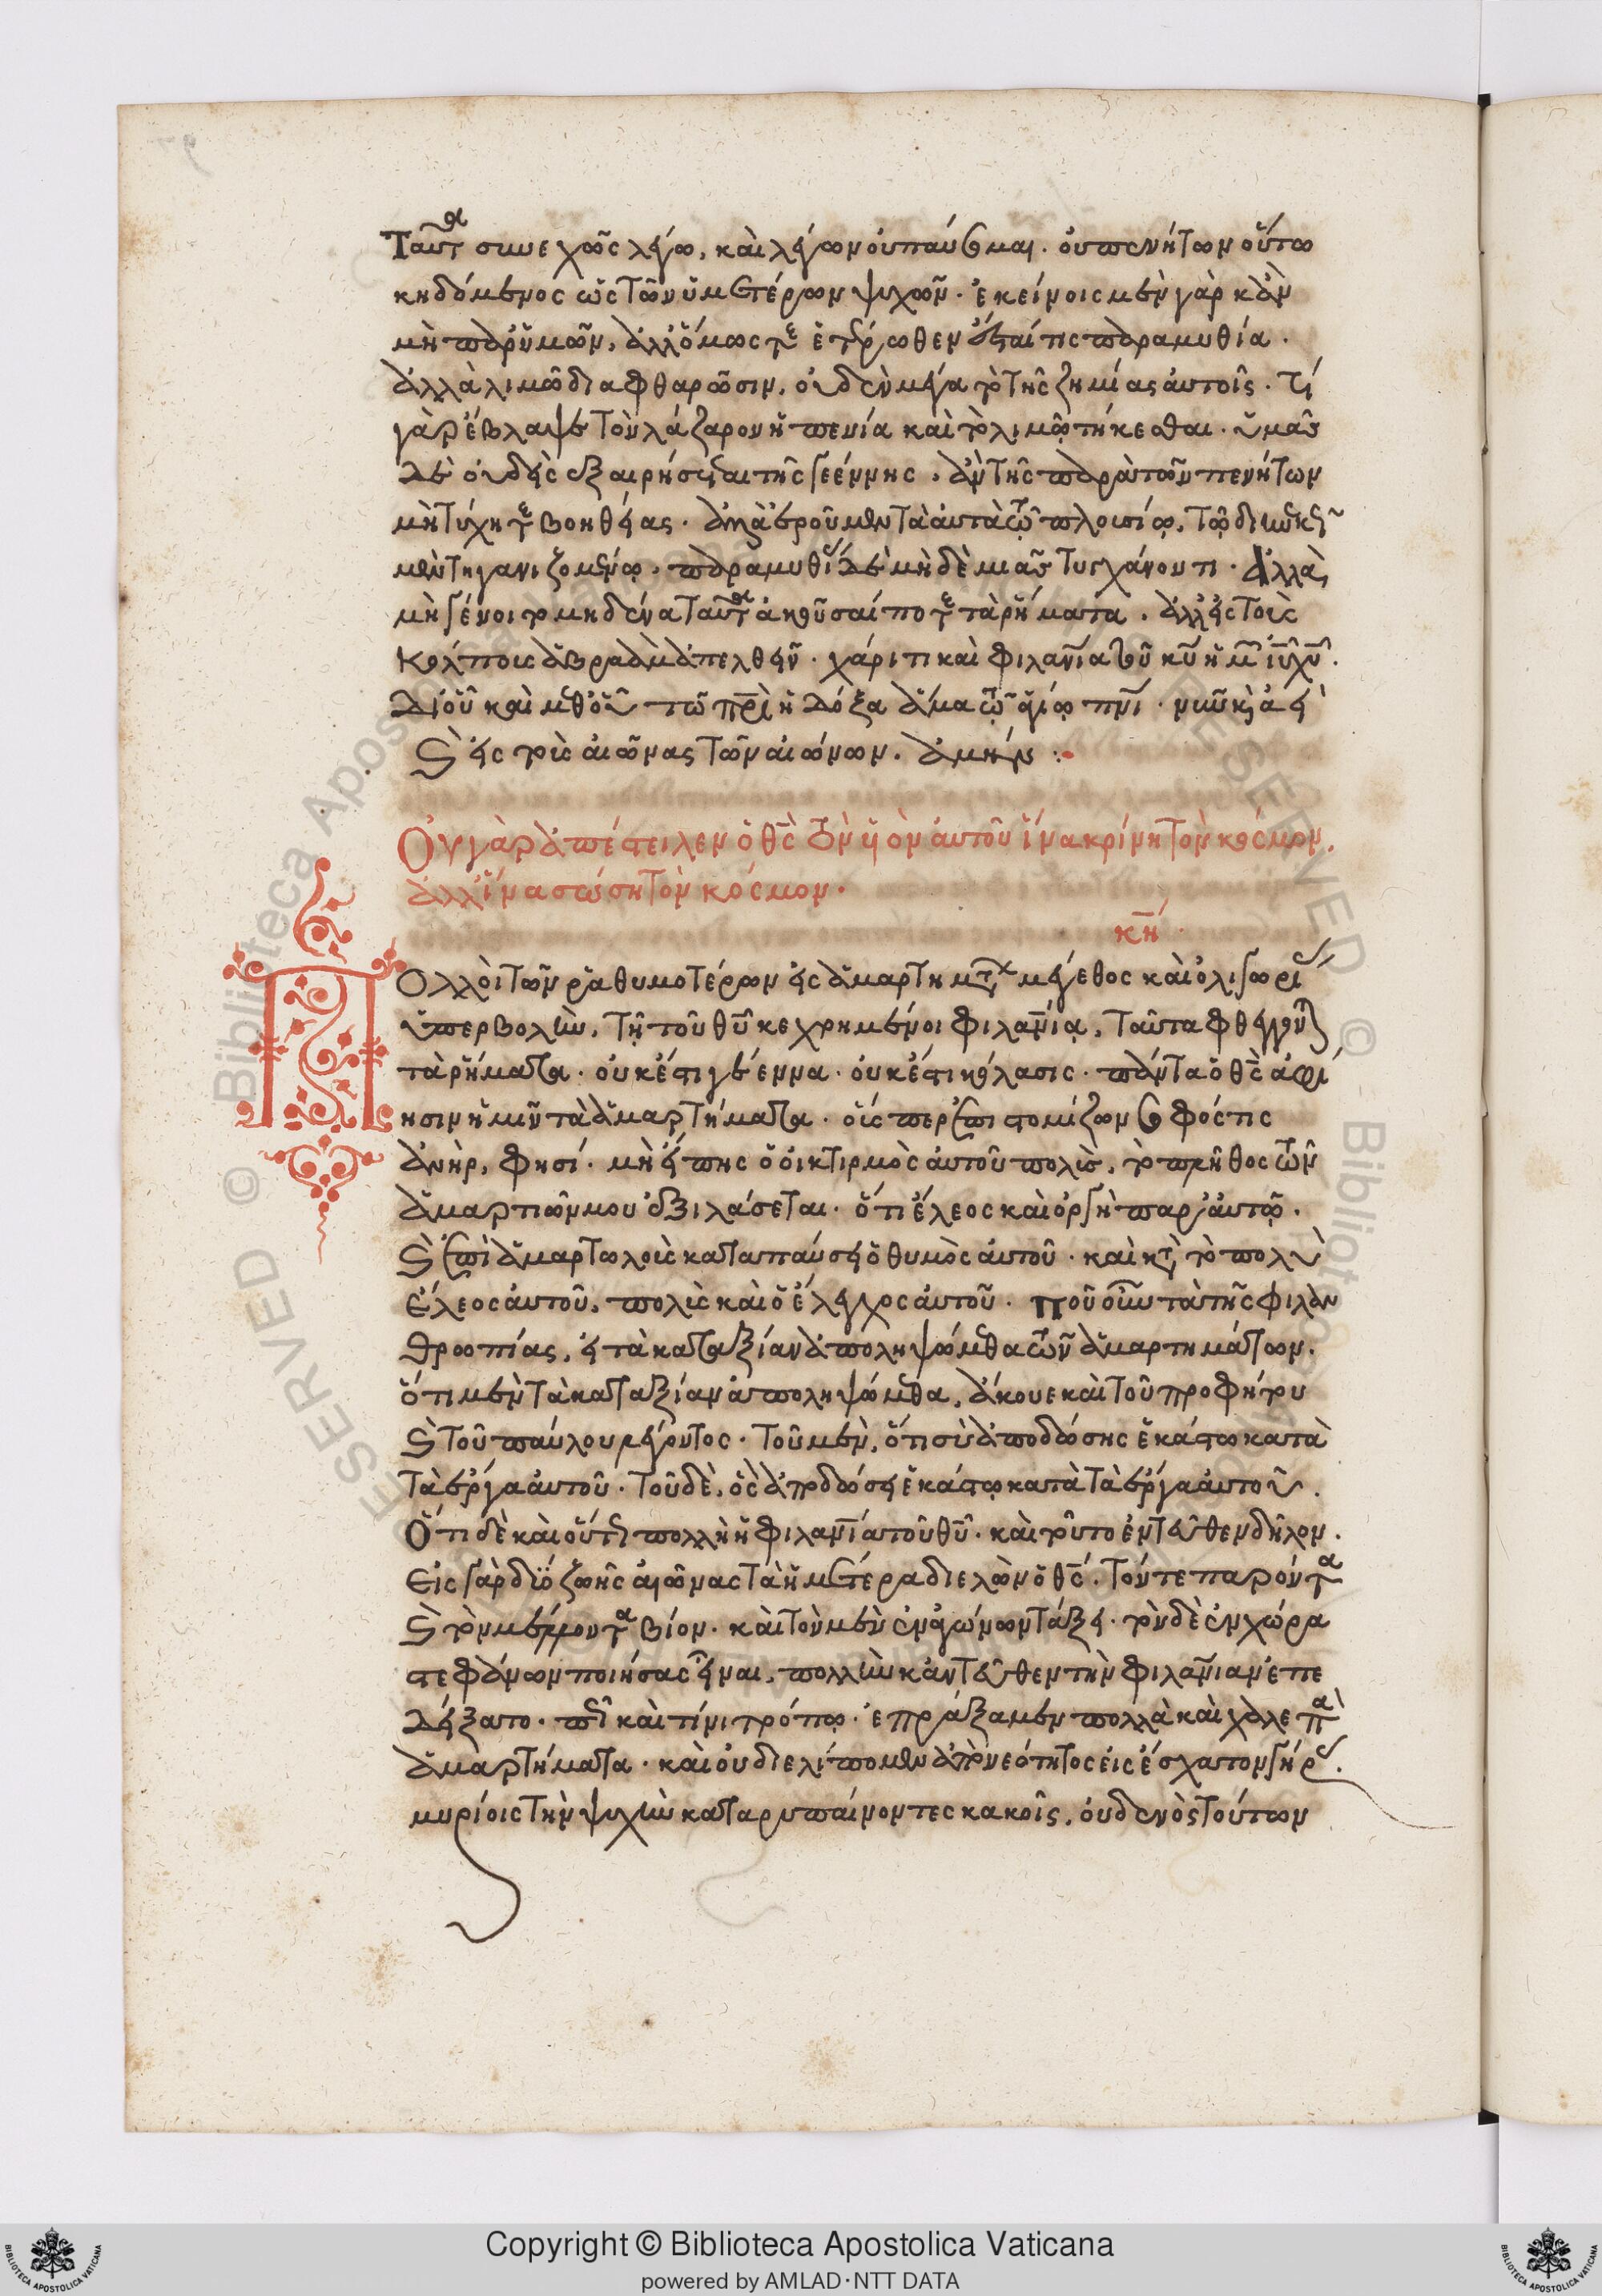 Ταῦτα συνεχῶς λέγω, καὶ λέγων οὐ παύσομαι. οὐ πενήτων οὕτω
κηδόμενος ὡς τῶν ὑμετέρων ψυχῶν. ἐκείνοις μὲν γὰρ κἂν
μὴ παρ' ὑμῶν, ἀλλ' ὅμως τε ἑτέρωθεν ἔσται τις παραμυθία.
ἀλλὰ λιμῶ διαφθαρῶσιν, οὐδὲν μέγα τὸ τῆς ζημίας αὐτοῖς. τί
γὰρ ἔβλαψε τὸν λάζαρον ἡ πενία καὶ τὸ λιμῷ τήκεσθαι. ὑμᾶς
δὲ οὐδεὶς ἐξαιρήσεται τῆς γεέννης, ἂν τῆς παρὰ τῶν πενήτων
μὴ τύχητε βοηθείας. ἀλλὰ ἐροῦμεν τὰ αὐτὰ τῷ πλουσίῳ, τῷ διηνεκῶς
τηγανιζομένῳ, παραμυθίας δὲ μηδὲ μιᾶς τυγχάνοντι. Ἀλλὰ
μὴ γένοιτο μηδένα ταῦτα ἀκοῦσαί ποτε τὰ ῥήματα. ἀλλ' εἰς τοὺς
κόλποις ἀβραὰμ ἀπελθεῖν. χάριτι καὶ φιλανΐα τοῦ κυ ἡμ ιυ χυ.
Δι' οὗ καὶ μεθ' οὗ τῷ πρι ἡ δόξα ἅμα τῷ ἁγίῳ πνι. νῦν καὶ ἀεὶ
καὶ εἰς τοὺς αἰῶνας τῶν αἰώνων. ἀμήν :
Οὐ γὰρ ἀπέστειλεν ὁ θς τὸν υἱὸν αὐτοῦ ἵνα κρίνῃ τὸν κόσμον,
ἀλλ' ἵνα σώσῃ τὸν κόσμον.
κη
Πολλοὶ τῶν ῥαθυμοτέρων εἰς ἁμαρτημάτων μέγεθος καὶ ὀλιγωρίας
ὑπερβολὴν, τῇ τοῦ θυ κεχρημένοι φιλανΐᾳ, ταῦτα φθέγγονται
τὰ ῥήματα. οὐκ ἔστι γέεννα. οὐκ ἔστι κόλασις. πάντα ὁ θς ἀφί
ησιν ἡμῖν τὰ ἁμαρτήματα. οἷς περ ἐπιστομίζων σοφός τις
ἀνὴρ, φησί. μὴ εἴπῃς ὁ οἰκτιρμὸς αὐτοῦ πολὺς, τὸ πλῆθος τῶν
ἁμαρτιῶν μου ἐξιλάσεται. ὅτι ἔλεος καὶ ὀργὴ παρ' αὐτῷ.
καὶ ἐπὶ ἁμαρτωλοὺς καταπαύσει ὁ θυμὸς αὐτοῦ. καὶ κατὰ τὸ πολὺ
ἔλεος αὐτοῦ, πολὺς καὶ ὁ ἔλεγχος αὐτοῦ. ποῦ οὖν τὰ τῆς φιλαν
θρωπίας, εἰ τὰ κατ' ἀξίαν ἀποληψόμεθα τῶν ἁμαρτημάτων.
ὅτι μὲν τὰ κατ' ἀξίαν ἀποληψόμεθα, ἄκουε καὶ τοῦ προφήτου
καὶ τοῦ παύλου λέγοντος. τοῦ μὲν, ὅτι σὺ ἀποδώσῃς ἑκάστω κατὰ
τὰ ἔργα αὐτοῦ. τοῦ δὲ, ὃς ἀποδώσει ἑκάστῳ κατὰ τὰ ἔργα αὐτοῦ.
Ὅτι δὲ καὶ οὕτως πολλὴ ἡ φιλανΐα τοῦ θυ. καὶ τοῦτο ἐντεῦθεν δῆλον.
Εἰς γὰρ δύο ζωῆς αἰῶνας τὰ ἡμέτερα διελὼν ὁ θς. τόν τε παρόντα
καὶ τὸν μέλλοντα βίον. καὶ τὸν μὲν ἐν ἀγώνων τάξει. τὸν δὲ ἐν χώρα
στεφάνων ποιήσας εἶναι, πολλὴν κἀντεῦθεν τὴν φιλανΐαν ἐπε
δείξατο. πῶς καὶ τίνι τρόπῳ. ἐπράξαμεν πολλὰ καὶ χαλεπὰ
ἁμαρτήματα. καὶ οὐ διελίπομεν ἀπὸ νεότητος εἰς ἔσχατον γῆρας.
μυρίοις τὴν ψυχὴν καταρυπαίνοντες κακοῖς, οὐδενὸς τούτων
Copyright © Biblioteca Apostolica Vaticana
powered by AMLAD·NTT DATA